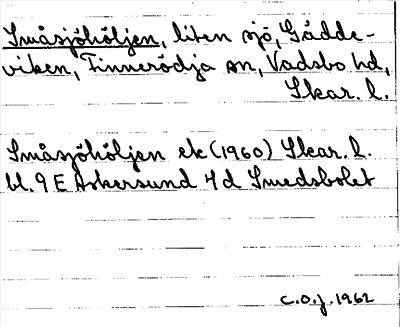 Småsjöhöljen, liten sjö, Gädde-
viken, Finnerödja sn, Vadsbo hd,
Skar. l.
Småsjöhöljen ek (1960) Skar. l.
bl. 9 E Askersund 4 d Smedsbolet
C.O.J. 1962